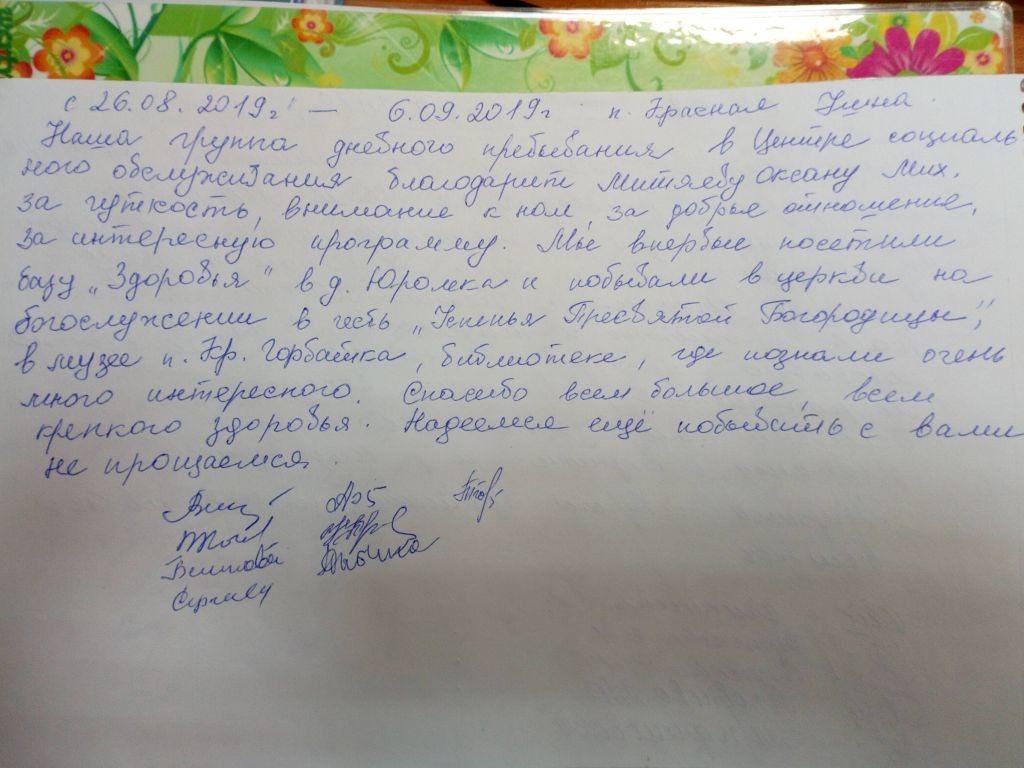 с 26.08. 2019г — 6.09.2019г п. Красная Узнна
Наша группа дневного пребывания в Центре социаль
ного обслуживания благодарит Митяеву Оксану Мих.
за чуткость, внимание к нам, за добрые отношение,
за интересную программу. Мы впервые посетили
базу „Здоровья" в д. Юромка и побывали в церкви на
богослужении в честь „Успенья Пресвятой Богородицы",
в музее п. Кр. Горбатка, библиотеке, где познали очень
много интересного. Спасибо всем большое, всем
крепкого здоровья. Надеемся ещё побывать с вами
не прощаемся.